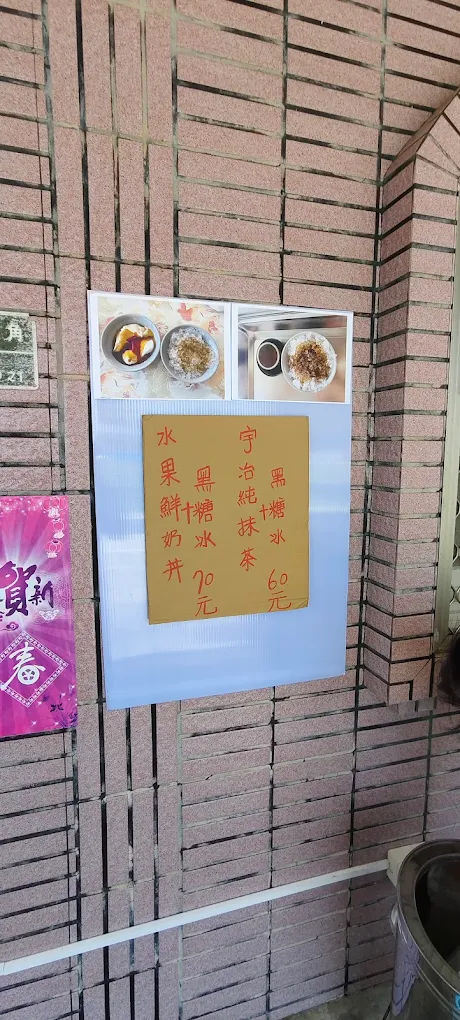 宇治純抹茶
+黑糖冰 60元
水果鮮奶丼
+黑糖冰 70元
賀新
春